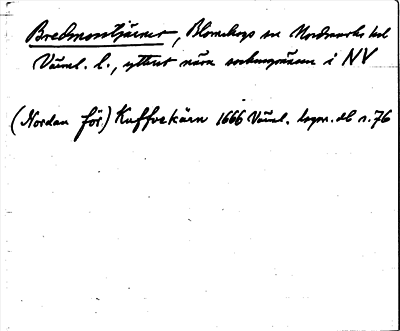 Bredmontjärnet, Blomskogs sn Nordmarks hd
Värml. l., ytterst nära sockengränsen i NV
(Nordan för) Kuffvekärn 1666 Värml. lagm. db s. 76